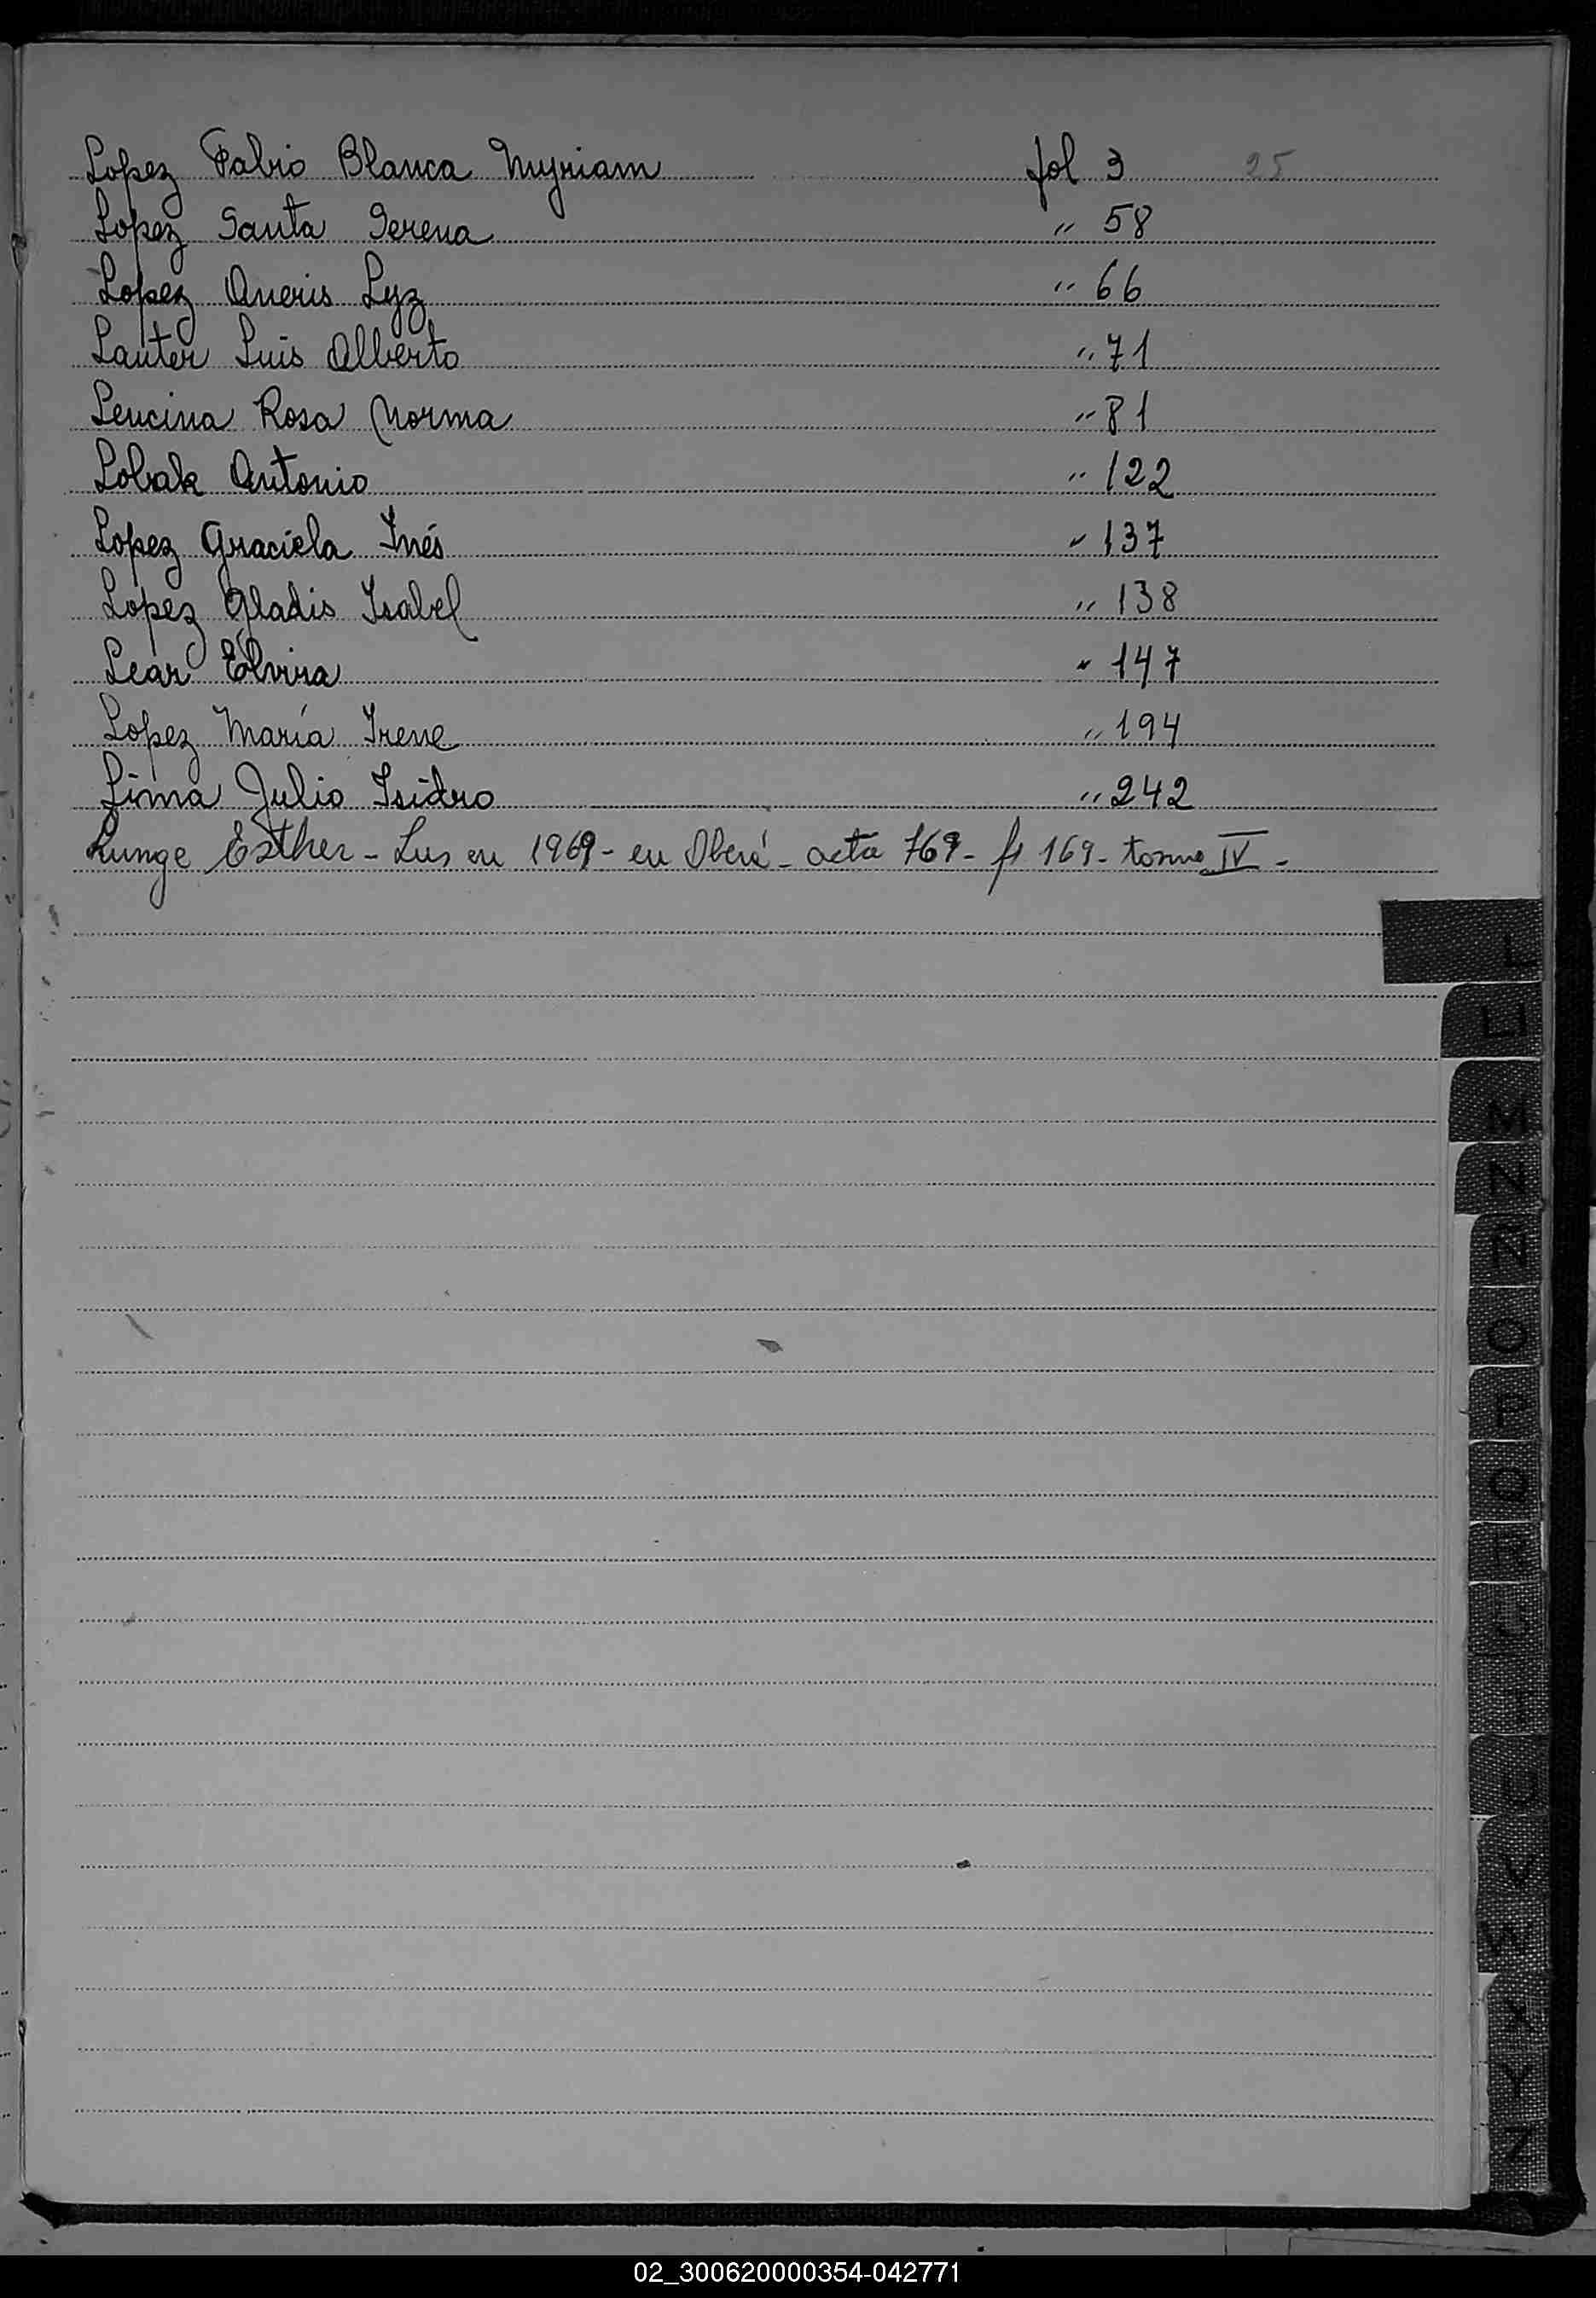 Lopez Fabio Blanca Myriam fol 3 25
Lopez Santa Serena " 58
Lopez Aneris Lyz " 66
Lauter Luis Alberto " 71
Lencina Rosa Norma " 81
Lobak Antonio " 122
Lopez Graciela Inés " 137
Lopez Gladis Isabel " 138
Lear Elvira " 147
Lopez María Irene " 194
Lima Julio Isidro " 242
Lunge Esther - Lus en 1969 - en Oberá - acta 769 - fs 169 - tomo IV -
L
Ll
M
N
Ñ
O
P
Q
R
S
T
U
V
W
X
Y
Z
02_300620000354-042771